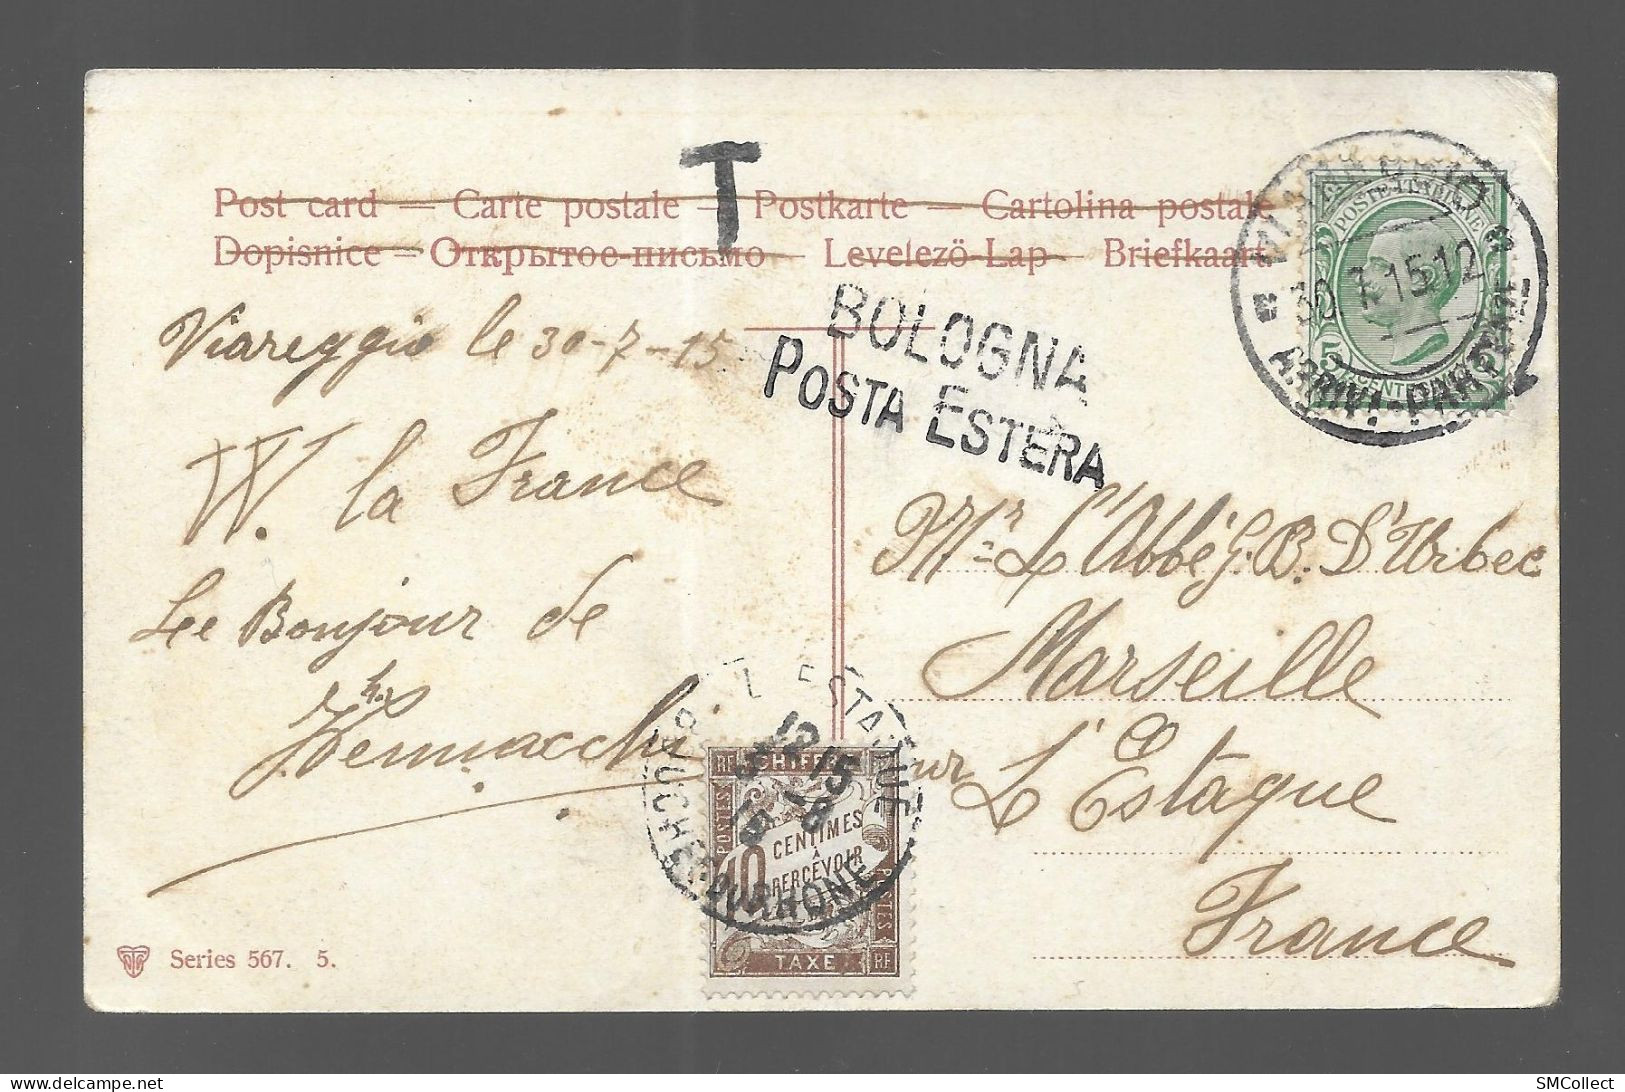 T
Post card — Carte postale — Postkarte — Cartolina postale
Dopisnice — Открытое письмо — Levelezö-Lap — Briefkaart
POSTE ITALIANE
30 7 15 12
ARRIVI-PARTENZE
5 CENTESIMI 5
BOLOGNA
POSTA ESTERA
Viareggio le 30-7-15
W. la France
Le Bonjour de
Mr L'Abbé G. B. D'Urbec
Marseille
sur L'Estaque
France
L'ESTAQUE
BOUCHES-DU-RHONE
12 15
RF CHIFFRE
POSTES
10 CENTIMES
À
PERCEVOIR
POSTES
TAXE RF
Series 567. 5.
SMCollect